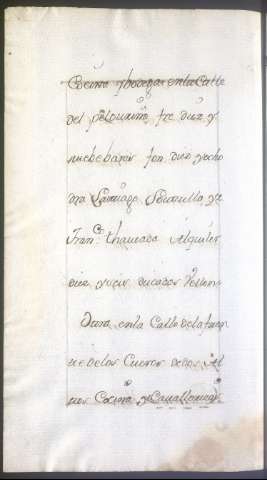 Cocina y bodega en la Calle
del pelegrino fre diez y
nuebe baras fon. diez y ocho
dra Santiago Bonilla yz.
Fran.co Chamada Alquiler
diez y seis ducados Vellon
Otra en la Calle de la
de los Cueros de dos Al
tos Cocina y Cavalleriza